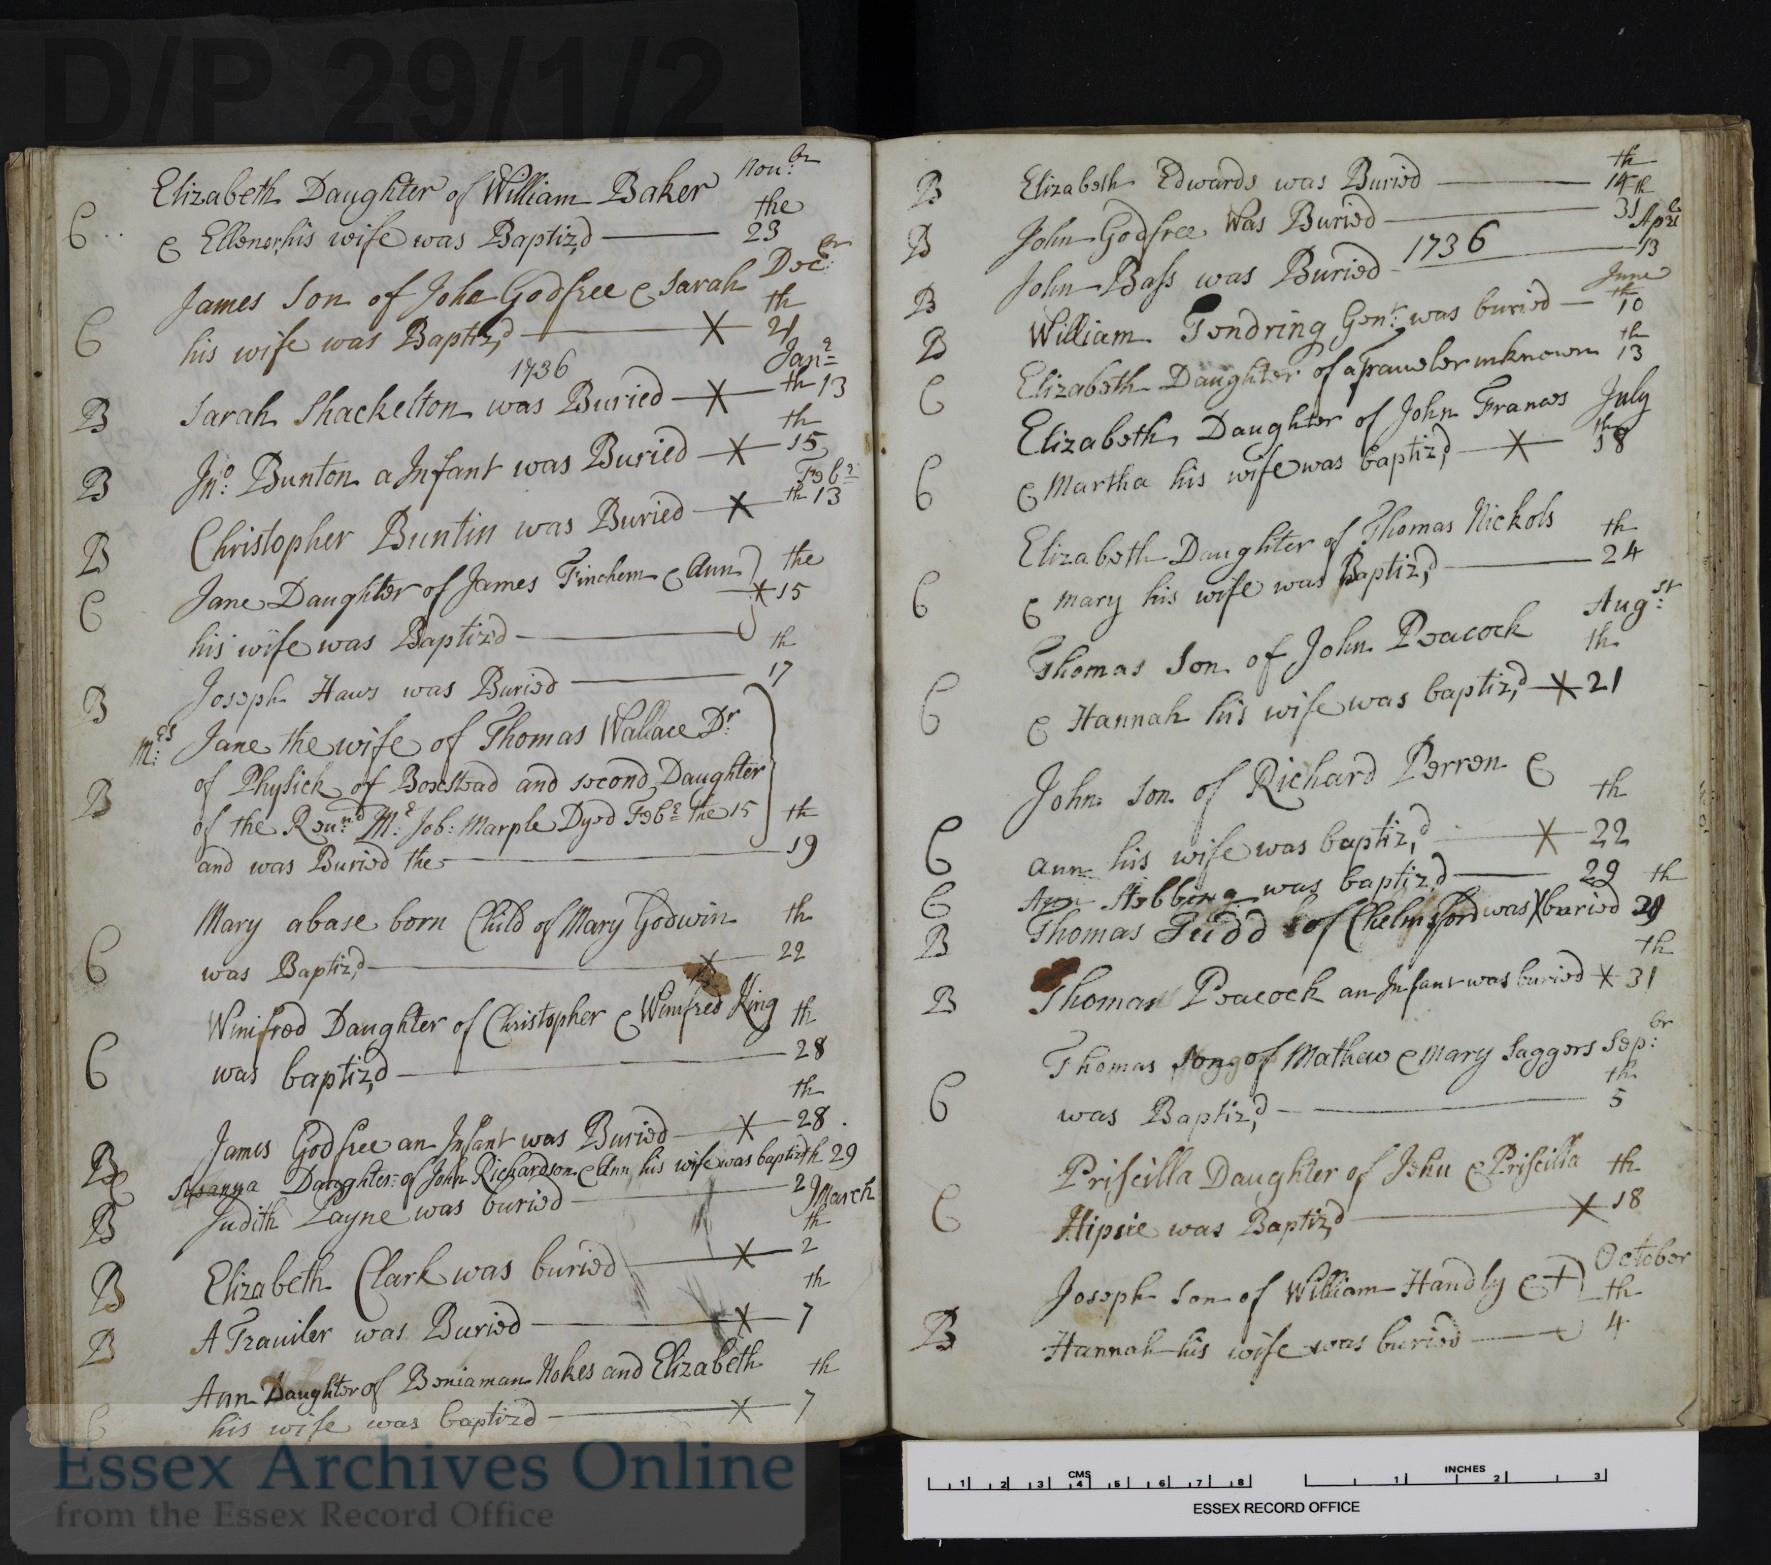 D/P 29/1/2
Nou:br
Elizabeth Daughter of William Baker the
C & Ellenor his wife was Baptiz,d 23
Dec:br
James Son of John Godfree & Sarah th
C his wife was Baptiz,d X 21
1736 Janr
B Sarah Shackelton was Buried X th 13
th
B Jno: Bunton a Infant was Buried X 15
Febr
B Christopher Buntin was Buried X th 13
C Jane Daughter of James Finchem & Ann the
X 15
his wife was Baptiz'd
th
B Joseph Haws was Buried 17
M:rs Jane the wife of Thomas Wallace Dr:
B of Physick of Boxstead and second Daughter
of the Reu:nd Mr: Job: Marple Dyed Febr the 15 th
and was Buried the 19
Mary a base born Child of Mary Godwin th
C was Baptiz,d X 22
Winifred Daughter of Christopher & Winifred King th
C was baptiz,d 28
th
B James Godfree an Infant was Buried X 28
C Susanna Daughter of John Richardson & Ann his wife was baptiz th 29
B Judith Layne was buried 29
March
th
B Elizabeth Clark was buried X 2
th
B A Trauiler was Buried X 7
Ann Daughter of Beniaman Nokes and Elizabeth th
C his wife was baptizd X 7
th
B Elizabeth Edwards was Buried 14
th
B John Godfree Was Buried 31
1736 Aprl
B John Bass was Buried 13
June
th
B William Tendring Gent: was buried 10
th
C Elizabeth Daughter of a Traueler unknown 13
Elizabeth Daughter of John Frances July
th
C & Martha his wife was baptiz,d X 18
Elizabeth Daughter of Thomas Nickols th
C & Mary his wife was Baptiz,d 24
Aug:st
Thomas Son of John Peacock th
C & Hannah his wife was baptiz,d X 21
John Son of Richard Perren & th
C Ann his wife was baptiz,d X 22
C Ann Stebbing was baptiz,d 29 th
B Thomas Judd of Chelmsford was X buried 29
th
B Thomas Peacock an Infant was buried X 31
Thomas Son of Mathew & Mary Saggers Sep:br
th
C was Baptiz,d 5
Priscilla Daughter of John & Priscilla th
C Hipsie was Baptiz,d X 18
October
Joseph Son of William Handly & th
B Hannah his wife was buried 4
Essex Archives Online
from the Essex Record Office
CMS
1 2 3 4 5 6 7 8
INCHES
1 2 3
ESSEX RECORD OFFICE